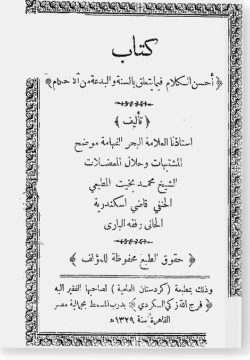 كتاب
﴿ أحسن الكلام فيما يتعلق بالسنة والبدعة من الأحكام ﴾
﴿ تأليف ﴾
استاذنا العلامة البحر الفهامة موضح
المشتبهات وحلال المعضلات
الشيخ محمد بخيت المطيعي
الحنفي قاضي اسكندرية
الحالى رفقه البارى
﴿ حقوق الطبع محفوظة للمؤلف ﴾
وذلك بمطبعة (كردستان العلمية) لصاحبها الفقير اليه
﴿ فرج الله زكي الكردي ﴾ بدرب المسمط بجمالية مصر
القاهرة سنة ١٣٢٩ ه